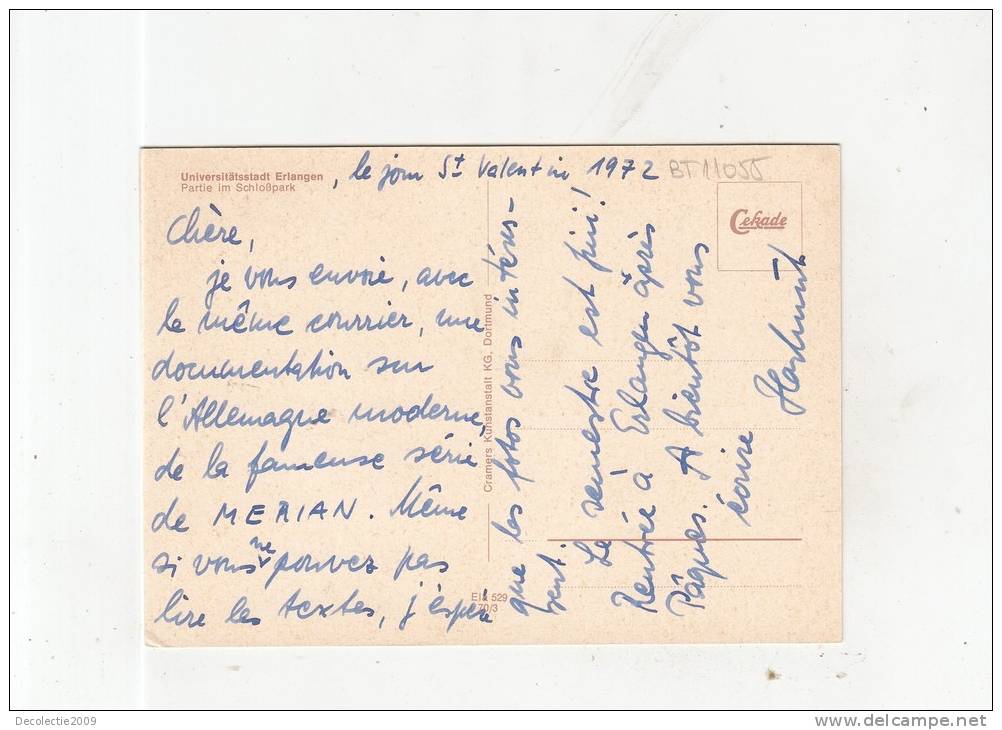 Universitätsstadt Erlangen
Partie im Schloßpark
, le jour St Valentin 1972
BT11055
Cekade
Chère,
je vous envoie, avec
le même courrier, une
documentation sur
l'Allemagne moderne,
de la fameuse série
de MERIAN. Même
si vous ne pouvez pas
lire les textes, j'espère
que les fotos vous intéres-
sent.
Le semestre est fini!
Rentrée à Erlangen après
Pâques. A bientôt vous
écrire
Hartmut
Cramers Kunstanstalt KG, Dortmund
70/3
Decolectie2009
www.delcampe.net